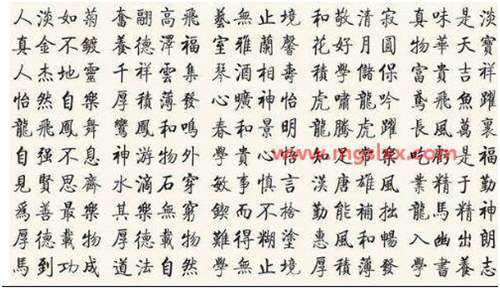 人淡如菊 奮翮高飛 藝無止境 和敬清寂 真味是淡
真金不鍍 養德澤福 室雅蘭馨 花好月圓 物華天寶
人杰地靈 千祥雲集 琴酒相壽 積學儲保 富貴吉祥
怡然自樂 厚積薄發 心曠神怡 虎嘯龍吟 鳶飛魚躍
龍飛鳳舞 鸞鳳和鳴 春和景明 龍騰虎躍 長風萬裏
自强不息 神游物外 學貴心 知足常樂 是福
見賢思齊 水滴石穿 敏事慎言 漢唐雄風 業精于勤
爲善最樂 其樂無窮 鍥而不捨 勤能補拙 龍馬精神
厚德載物 厚德載物 難得糊塗 惠風和暢 入幽出朗
馬到功成 道法自然 學無止境 厚積薄發 學書養志